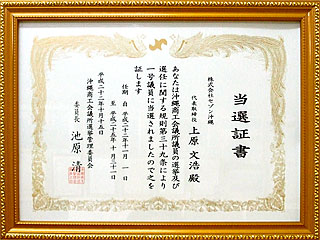 当選証書
株式会社セゾン沖縄
代表取締役 上原文浩殿
あなたは沖縄商工会議所議員の選挙及び
選任に関する規則第三十九条により
一号議員に当選されましたので之を
証します
任期 自 平成二十二年十一月 一日
至 平成二十五年 十月三十一日
平成二十二年十月十五日
沖縄商工会議所選挙管理委員会
委員長 池原 清